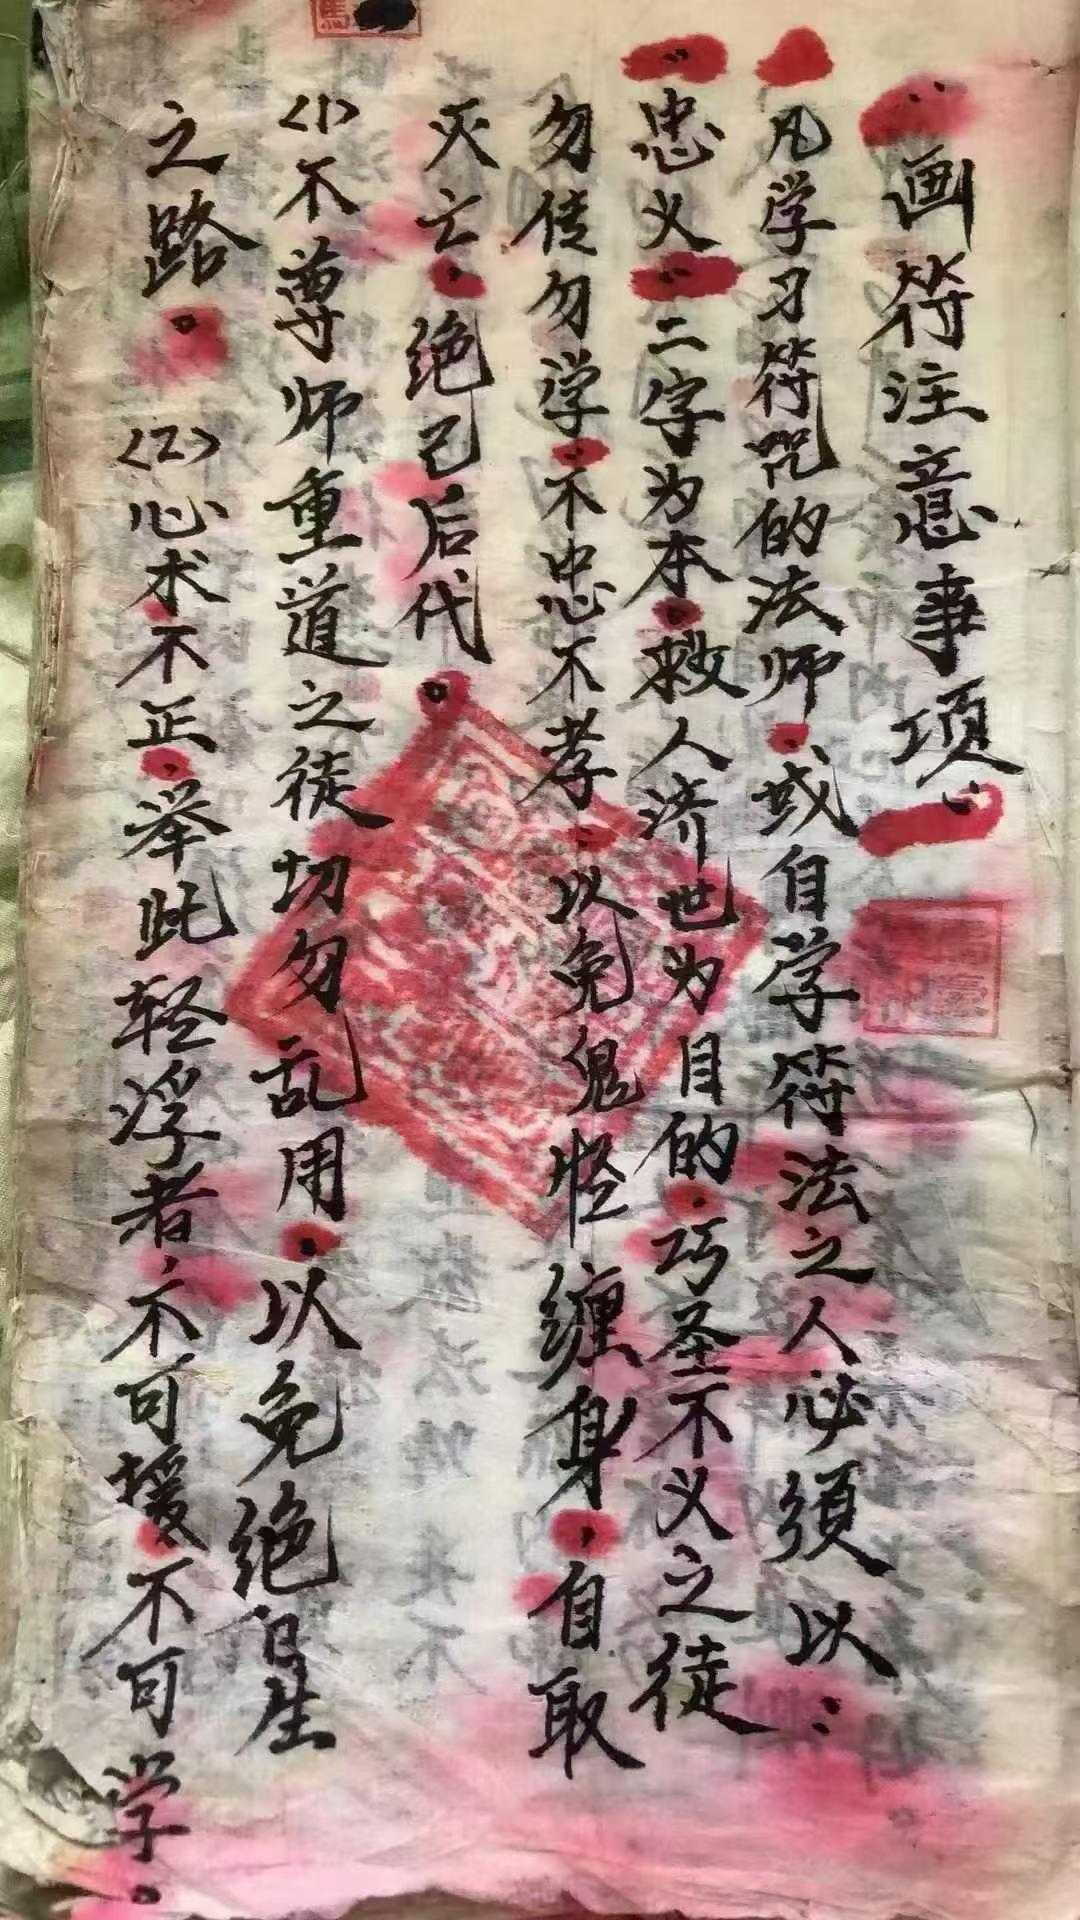 画符注意事项：
凡学习符咒的法师，或自学符法之人必须以：
“忠义”二字为本，救人济世为目的，巧圣不义之徒
勿传勿学，不忠不孝，以免鬼怪缠身，自取
灭亡，绝己后代。
<1>不尊师重道之徒切勿乱用，以免绝自生
之路。<2>心术不正，举此轻浮者不可援不可学。
馬